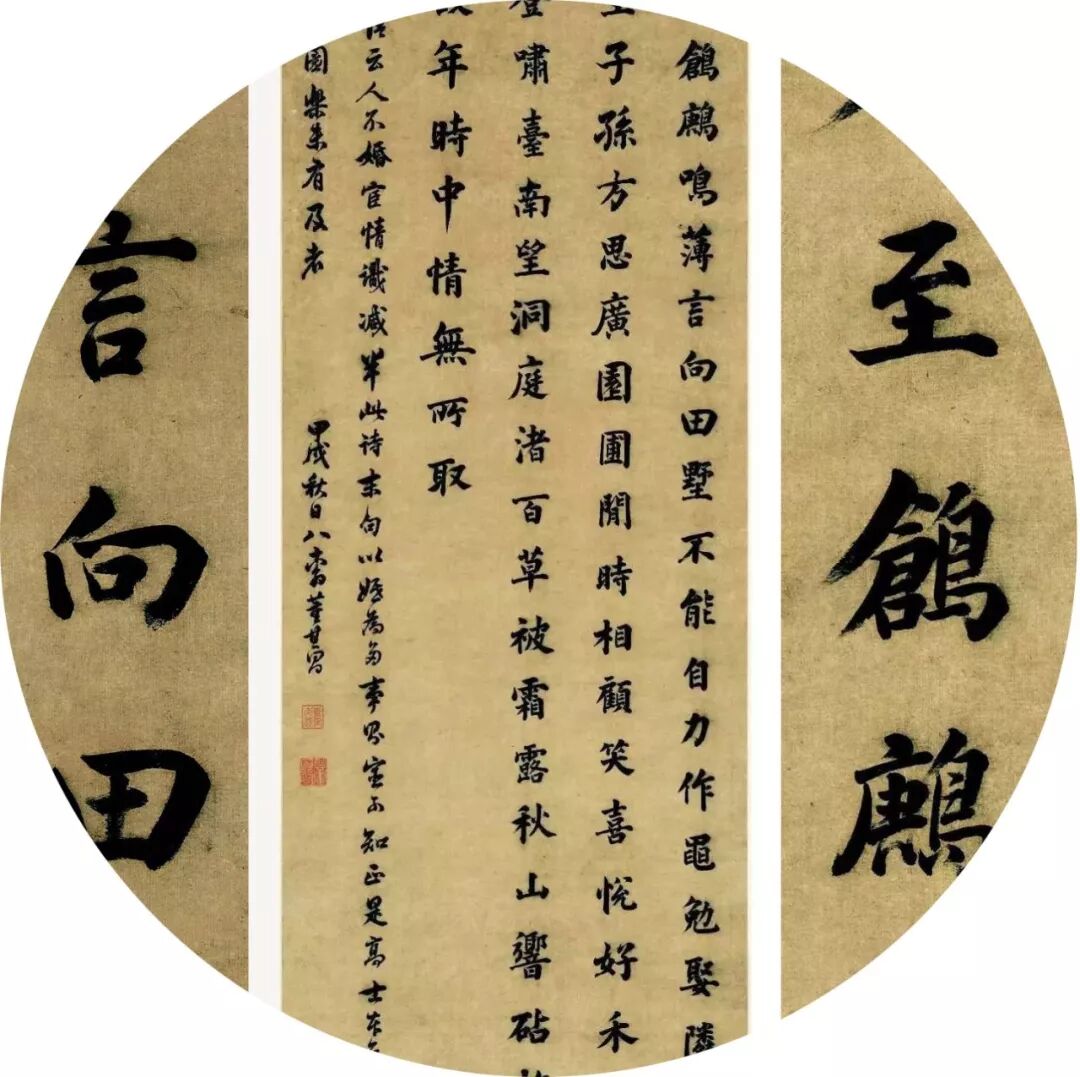 至鶬鶊
鶬鶊鳴薄言向田墅不能自力作黽勉娶隣
子孫方思廣園圃閒時相顧笑喜悅好禾
登嘯臺南望洞庭渚百草被霜露秋山響砧
年時中情無所取
云人不婚宦情識減半此詩末句以婚為多事宦不知正是高士
園樂未有及者
甲戌秋日八董其昌
言向田